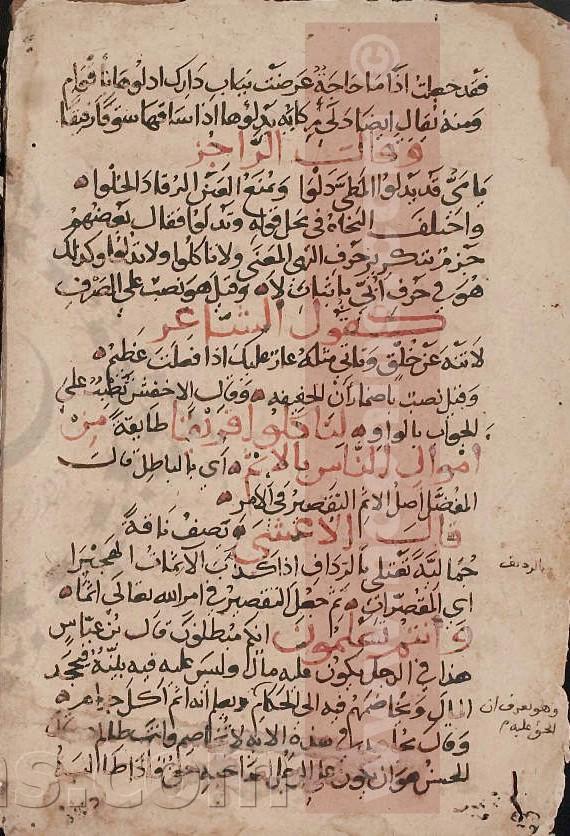 فقد جعلت اذا ما حاجة عرضت بباب دارك ادلوها باقوام
ومنه يقال ايضا دلى ركابه يدلوها اذا ساقها سوقا رفيقا
وقال الراجز
يا مي قد يدلوا المطي دلوا ويمنع العين الرقاد الحلوا
واختلف النحاة في محل قوله وتدلوا فقال بعضهم
جزم بتكرير حرف النهي المعنى ولا تاكلوا ولا تدلوا وكذلك
هو في حرف ابي باثبات لا وقيل هو نصب على الصرف
كقول الشاعر
لا تنه عن خلق وتاتي مثله عار عليك اذا فعلت عظيم
وقيل نصب باضمار ان الخفيفه وقال الاخفش نصب على
الجواب بالواو لتاكلوا فريقا طايفة من
اموال الناس بالاثم اي بالباطل قال
المفضل اصل الاثم التقصير في الامر
قال الاعشى يصف ناقة
جمالية تغتلي بالرداف اذا كذب الاثمات الهجيرا
بالرديف
اي المقصرات ثم جعل التقصير في امر الله تعالى اثما
وانتم تعلمون انكم مبطلون قال بن عباس
هذا في الرجل يكون عليه مال وليس عليه فيه بينة فيجحد
المال ويخاصمهم فيه الى الحكام ويعلم انه اثم اكل حرام
وهو يعرف ان
الحق عليه م
وقال مجاهد في هذه الاية لا تخاصم وانت ظالم
الحسن هو ان يكون على الرجل لصاحبه حق فاذا طالبه